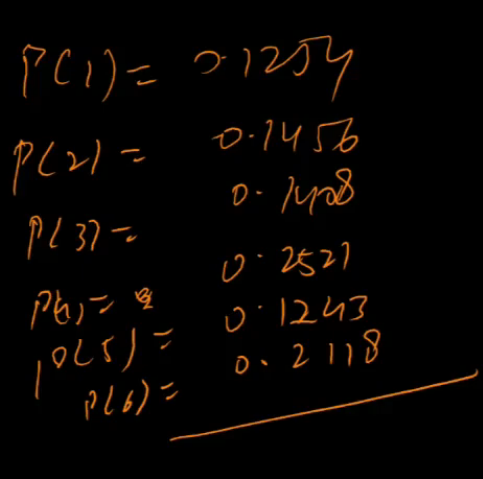 P(1) = 0.1254
P(2) = 0.1456
P(3) = 0.1408
P(4) = 0.2521
P(5) = 0.1243
P(6) = 0.2118